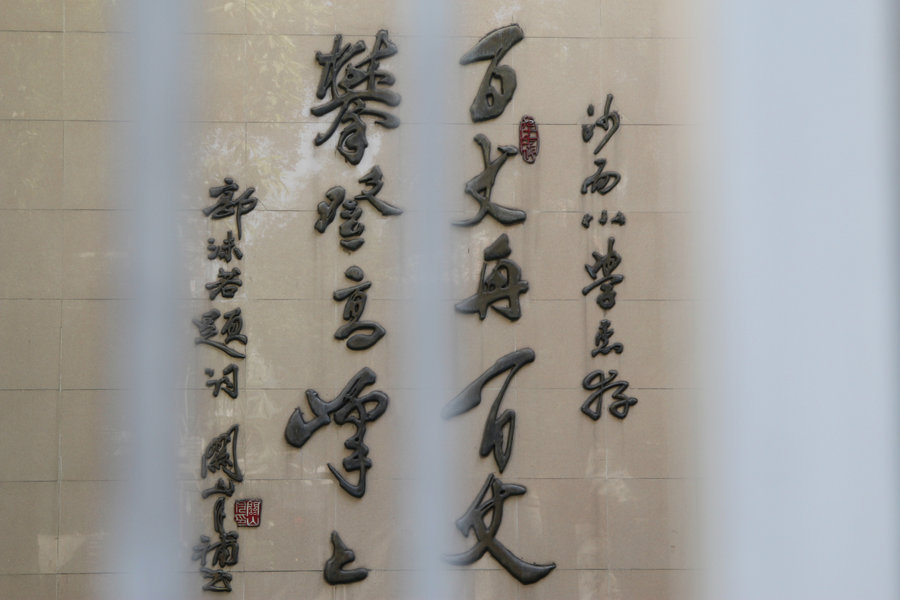 沙面小学惠存
百丈再百丈
攀登高峰上
郭沫若题词 关山月补书